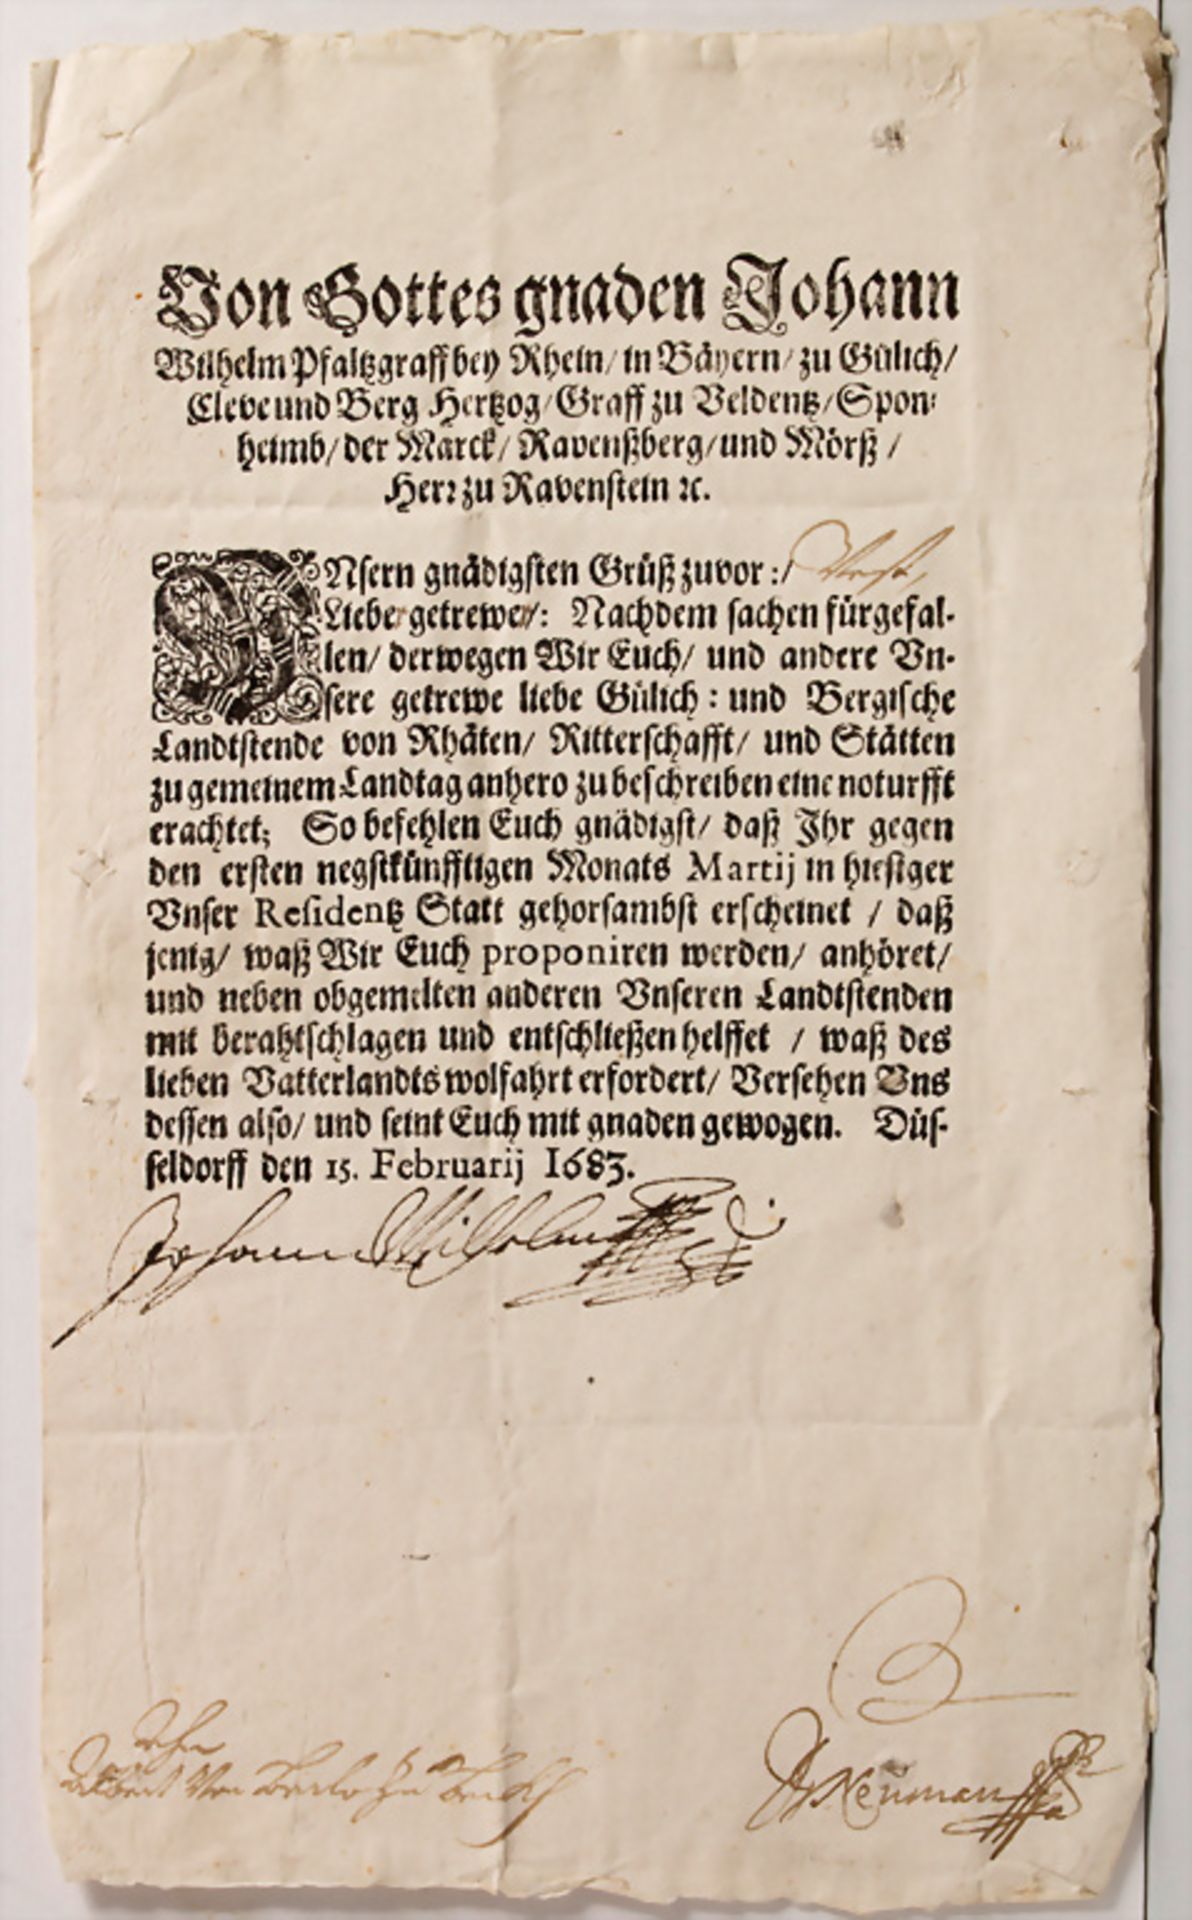 Von Gottes gnaden Johann
Wilhelm Pfaltzgraff bey Rhein/ in Bäyern/ zu Gülich/
Cleve und Berg Hertzog/ Graff zu Veldentz/ Spon-
heimb/ der Marck/ Ravenßberg/ und Mörß/
Herr zu Ravenstein ꝛc.
UNsern gnädigsten Grüß zuvor:/ Vest,
Lieber getrewer/: Nachdem sachen fürgefal-
len/ derwegen Wir Euch/ und andere Vn-
sere getrewe liebe Gülich: und Bergische
Landtstende von Rhäten/ Ritterschafft/ und Stätten
zu gemeinem Landtag anhero zu beschreiben eine noturfft
erachtet; So befehlen Euch gnädigst/ daß Ihr gegen
den ersten negstkünfftigen Monats Martij in hiesiger
Vnser Residentz Statt gehorsambst erscheinet / daß
jenig/ waß Wir Euch proponiren werden/ anhöret/
und neben obgemelten anderen Vnseren Landtstenden
mit berahtschlagen und entschließen helffet / waß des
lieben Vatterlandts wolfahrt erfordert/ Versehen Vns
dessen also/ und seint Euch mit gnaden gewogen. Düs-
seldorff den 15. Februarij 1683.
Johann Wilhelm
Von
Neuman